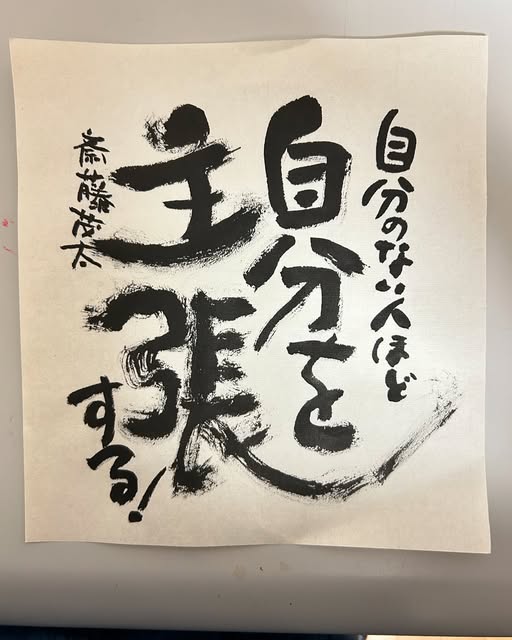 自分のない人ほど
自分を
主張
する!
斎藤茂太